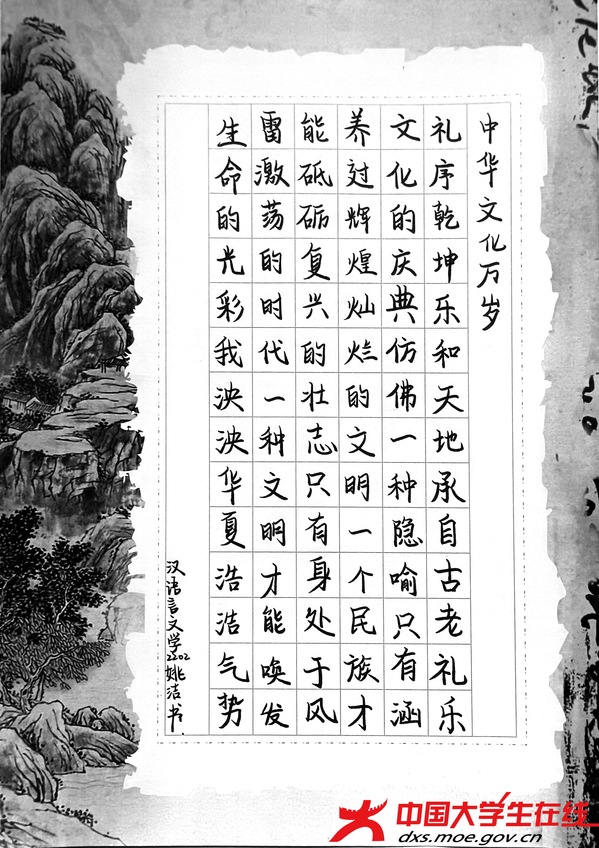 中华文化万岁
礼序乾坤乐和天地承自古老礼乐
文化的庆典仿佛一种隐喻只有涵
养过辉煌灿烂的文明一个民族才
能砥砺复兴的壮志只有身处于风
雷激荡的时代一种文明才能唤发
生命的光彩我泱泱华夏浩浩气势
汉语言文学2202姚洁书.
中国大学生在线
dxs.moe.gov.cn